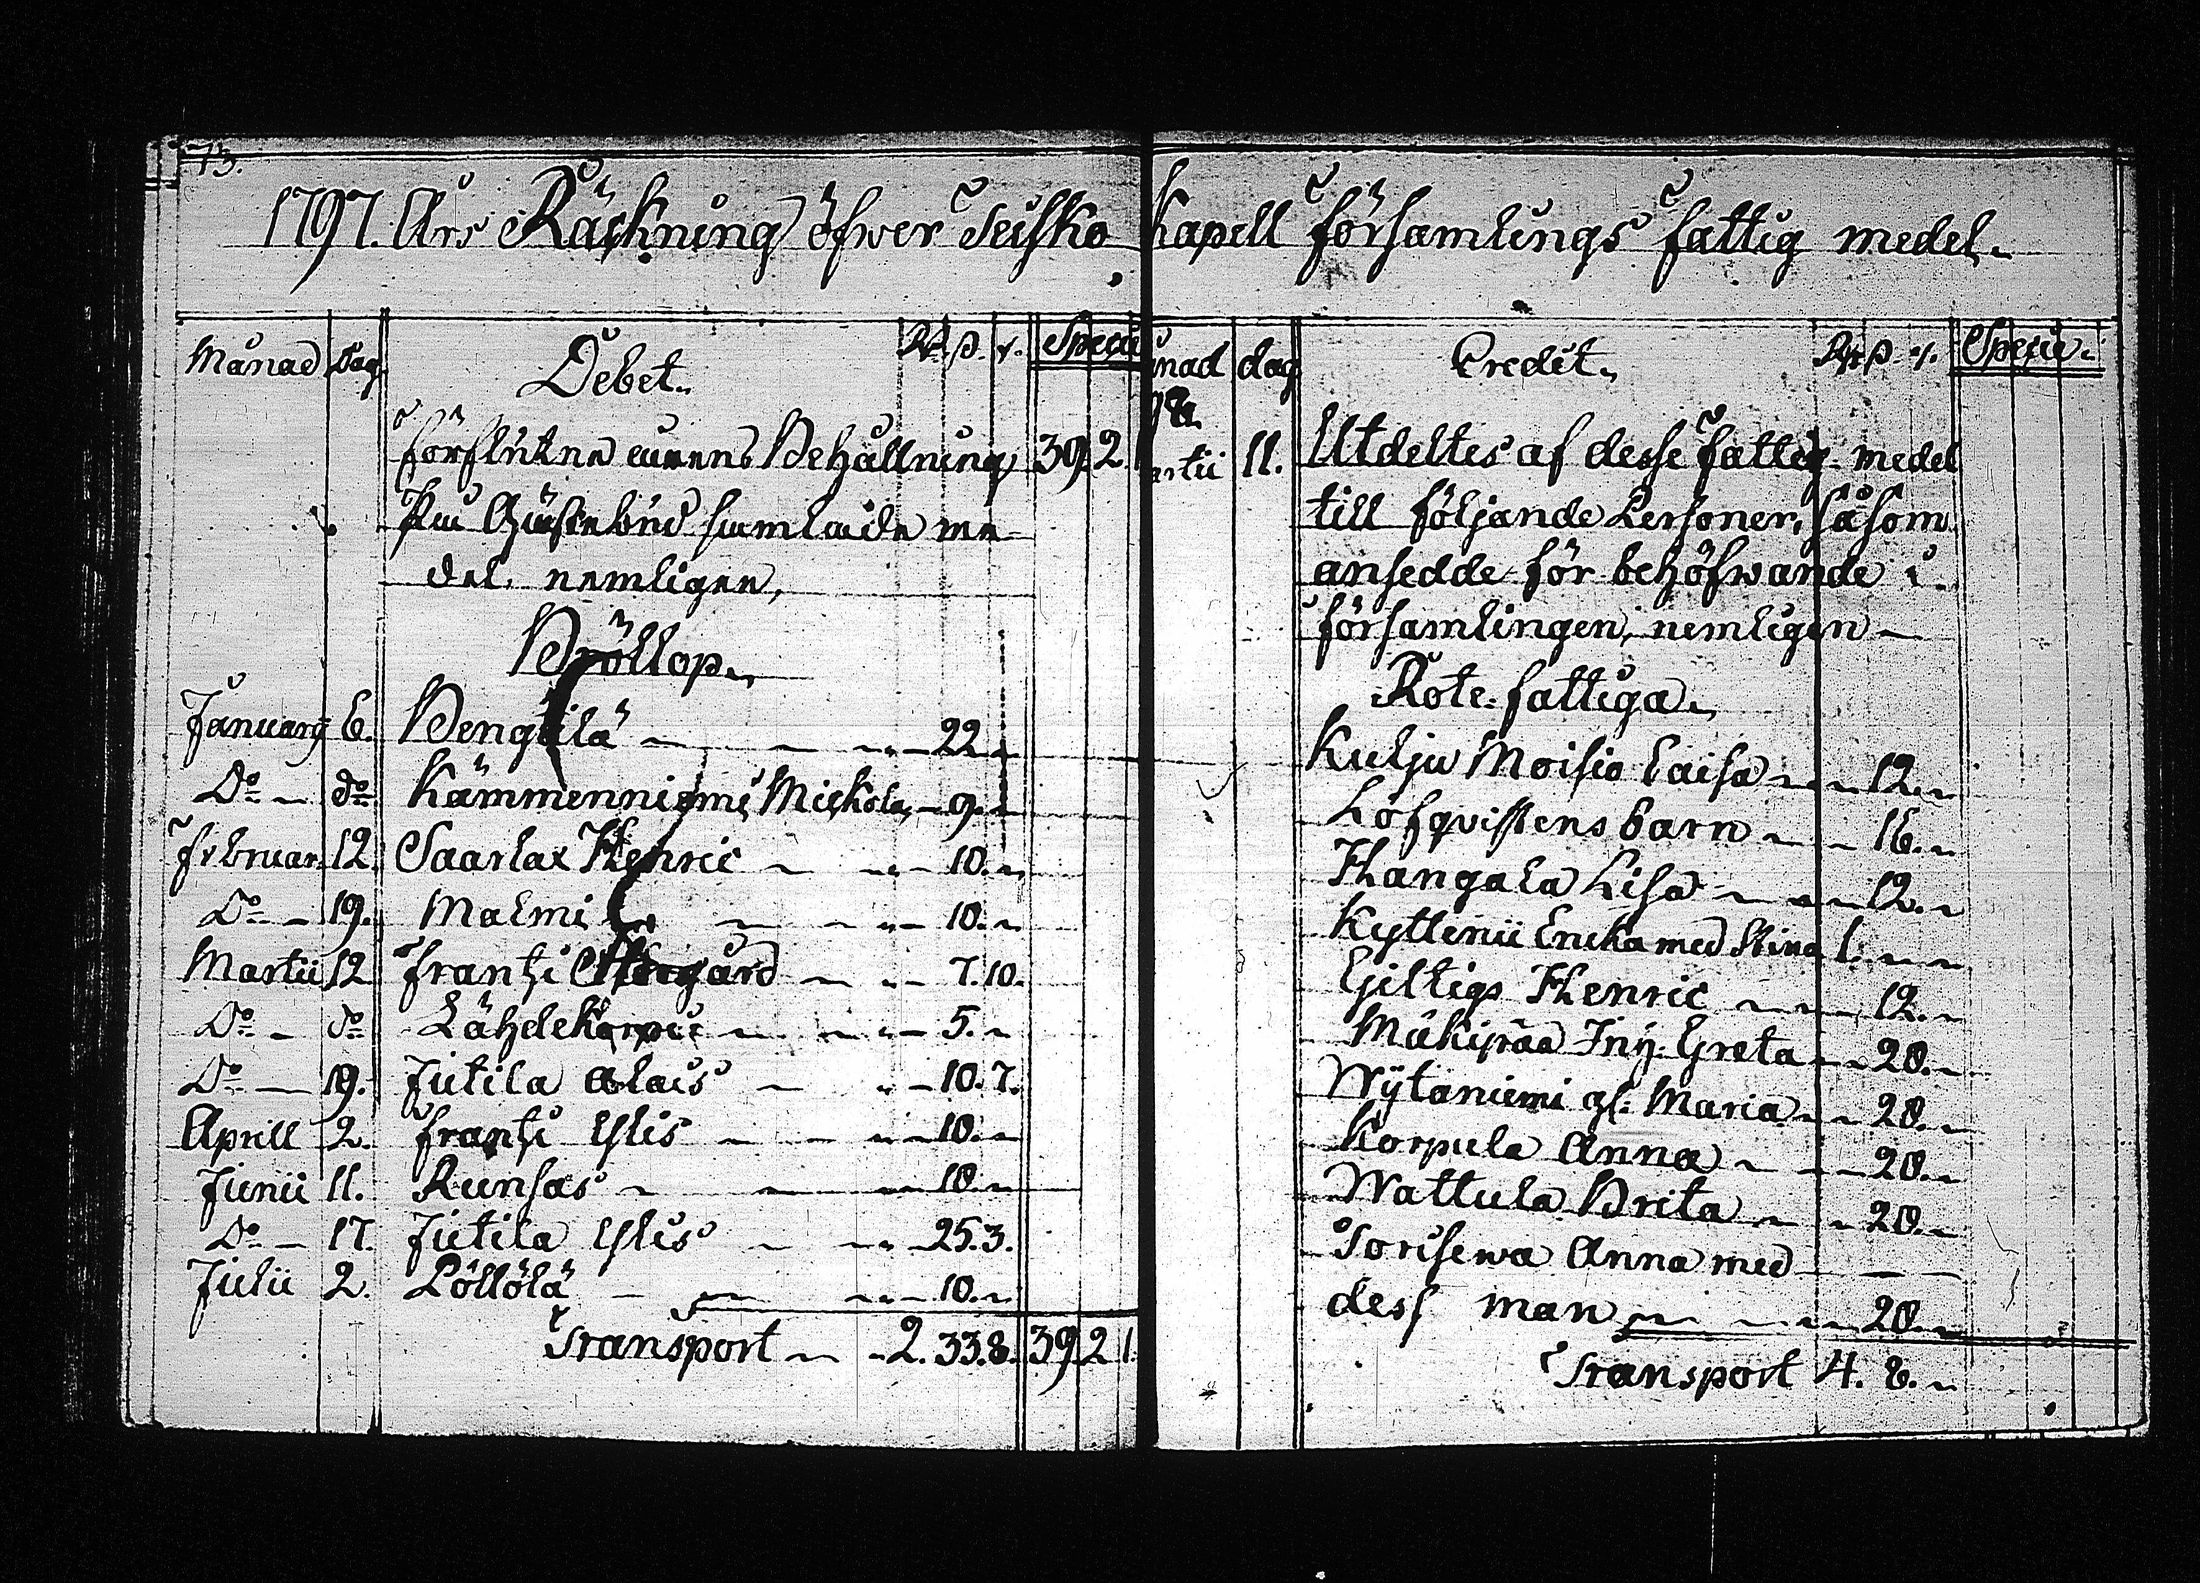 13.
1797. Års Räckning öfwer Seisko Kapell Församlings Fattig medel.
Månad Dag Debet. Rdr. ß. r. Specie
Förflutne årens Behållning 39 2 1
På Gästebud samlade me-
del nemligen,
Bröllop.
Januarij 6. Bengtilä 22.
Do do Kämmenniemi Mickola 9.
Februar. 12. Saarlax Henric 10.
Do 19. Malmi 10.
Martii 12 Frantzi 7.10.
Do do Lähdekorpi 5.
Do 19. Jutila Olais 10.7.
Aprill 2. Frantzi Elis 10.
Junii 11. Runsas 10.
Do 17. Jutila Elis 25.3.
Julii 2. Pöllölä 10.
Transport 2. 33.8. 39 2 1.
nad dag Credit. Rdr ß r. Specie.
artii 11. Utdeltes af desse Fattig medel
till följande Personer, såsom
ansedde för behöfwande i
församlingen, nemligen
Rote-fattiga.
Kulju Moisio Caisa 12.
Löfqvistens barn 16.
Hangala Lisa 12.
Kyttenii Ericka med Stina 1.
Giltigs Henric 12.
Mäkipää Inh. Greta 20.
Wytäniemi gl: Maria 20.
Korpula Anna 20.
Wattula Brita 20.
Torisewa Anna med
dess man 20.
Transport 4. 8.